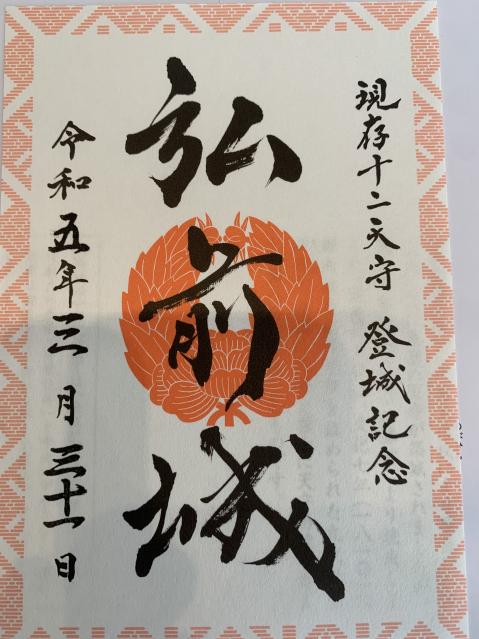 現存十二天守 登城記念
弘前城
令和五年三月三十一日